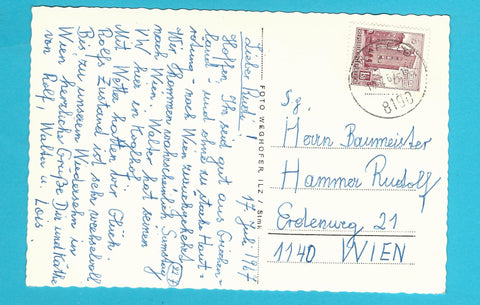 17. Juli 1967
Lieber Rudi!
Hoffen, Ihr seid gut aus Griechen-
land - und ohne zu starke Haut-
rötung - nach Wien zurückgekehrt
Wir kommen wahrscheinlich Samstag
nach Wien. Walter hat seinen
VW hier in Kraftst.
Mit Wetter hatten wir Glück.
Rolfs Zustand ist sehr wechselvoll
Bis zu unserem Wiedersehn in
Wien herzliche Grüße Dir und Käthe
von Rolf, Walter u. Lois
FOTO WEGHOFER, ILZ / Stmk
8160
Sg.
Herrn Baumeister
Hammer Rudolf
Erdenweg 21
1140 WIEN